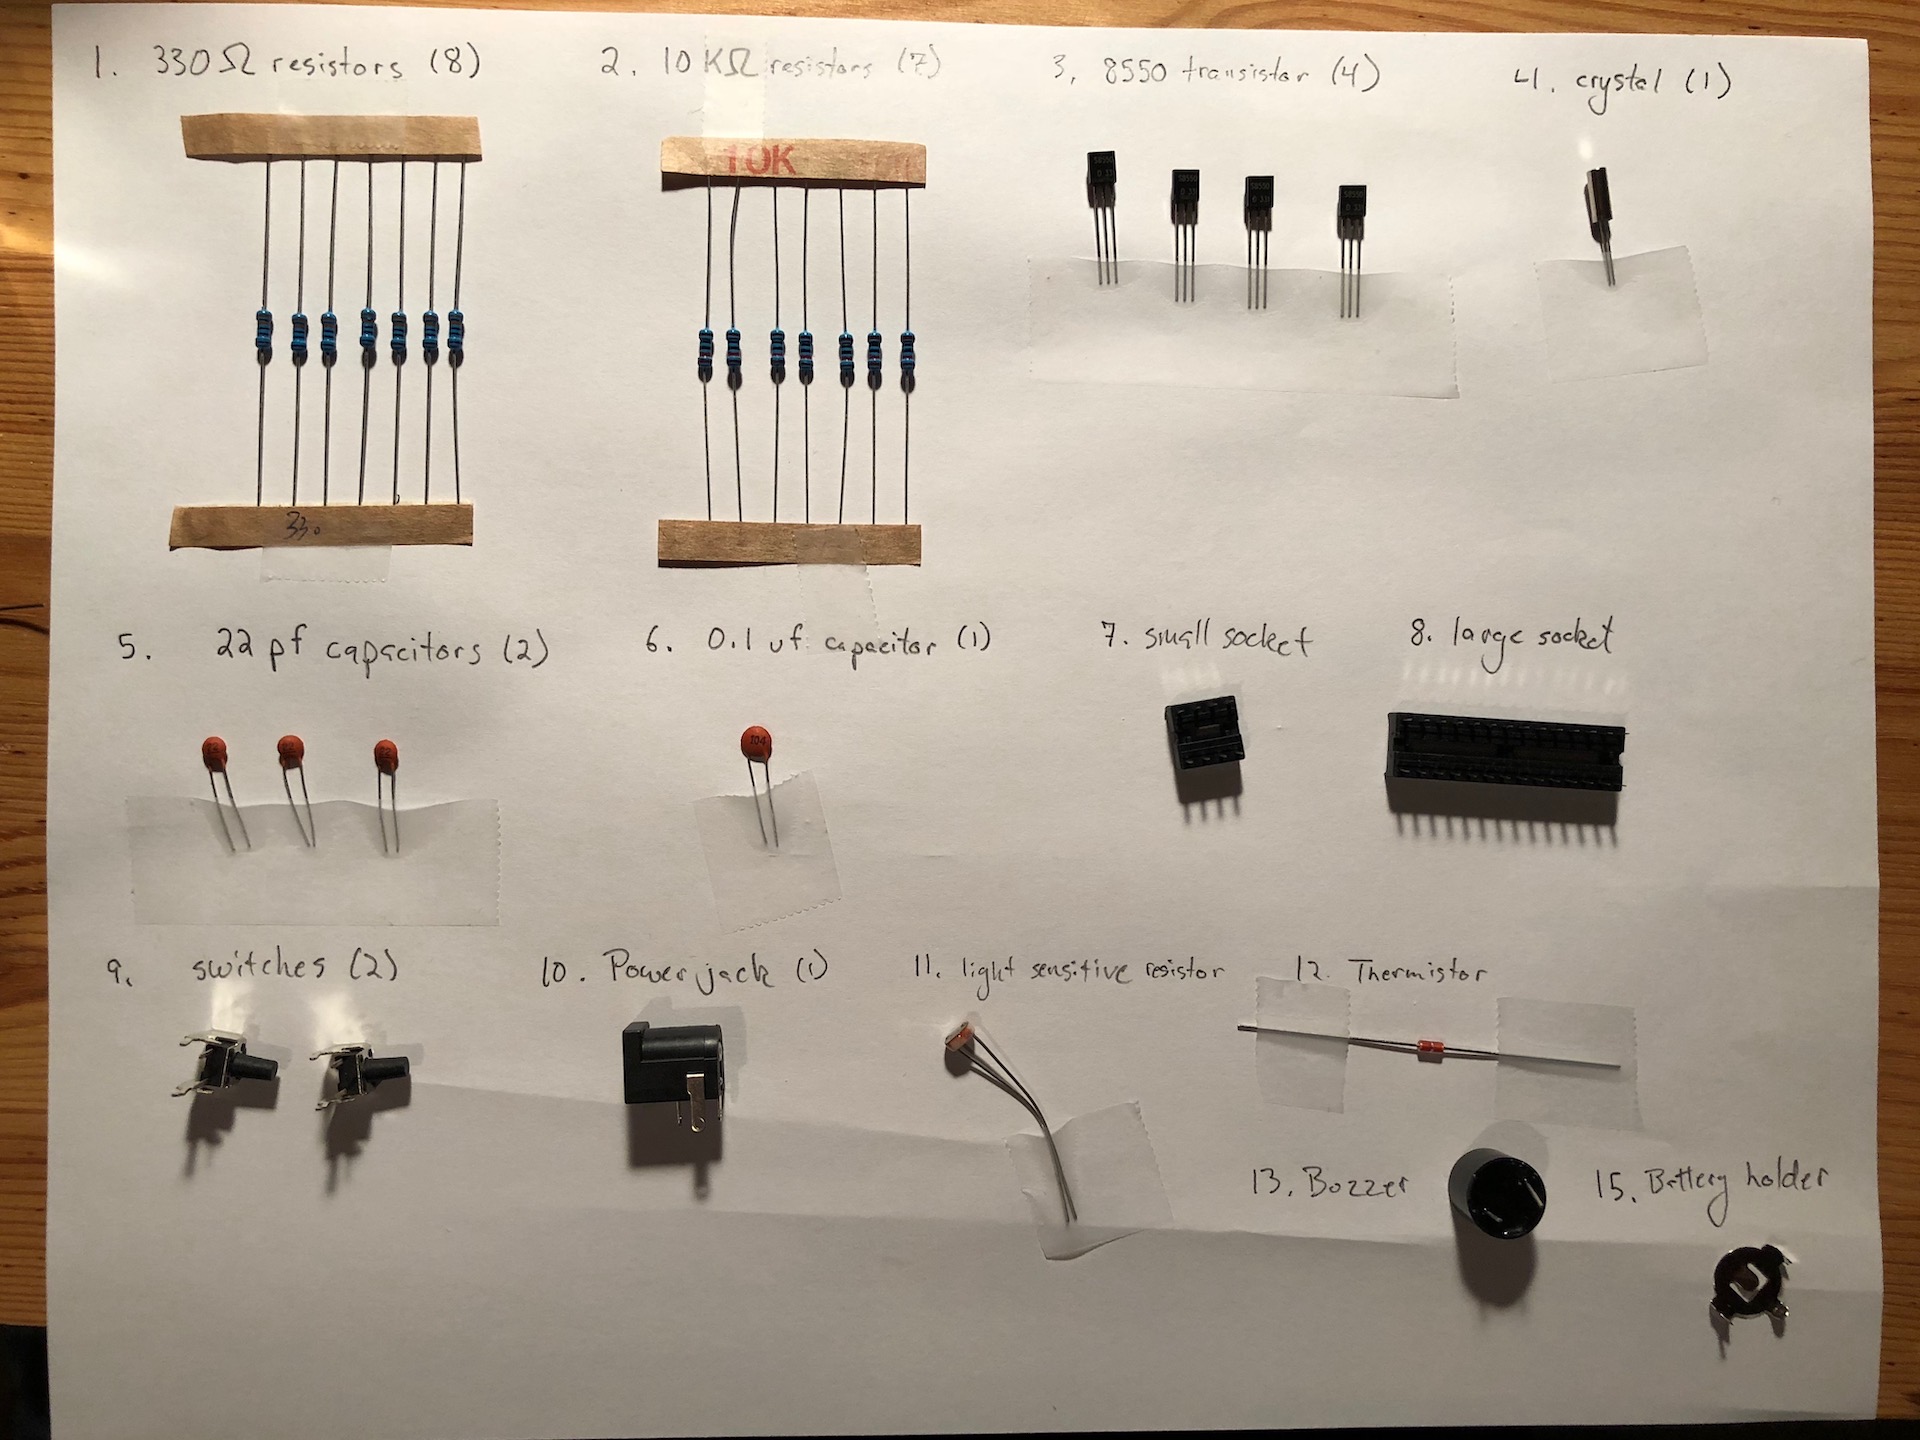 1. 330 Ω resistors (8)
2. 10 KΩ resistors (7)
3, 8550 transistor (4)
4. crystal (1)
10K
S8550
S8550
S8550
S8550
330
5. 22 pf capacitors (2)
6. 0.1 uf capacitor (1)
7. small socket
8. large socket
22
22
104
9. switches (2)
10. Power jack (1)
11. light sensitive resistor
12. Thermistor
13. Buzzer
15. Battery holder